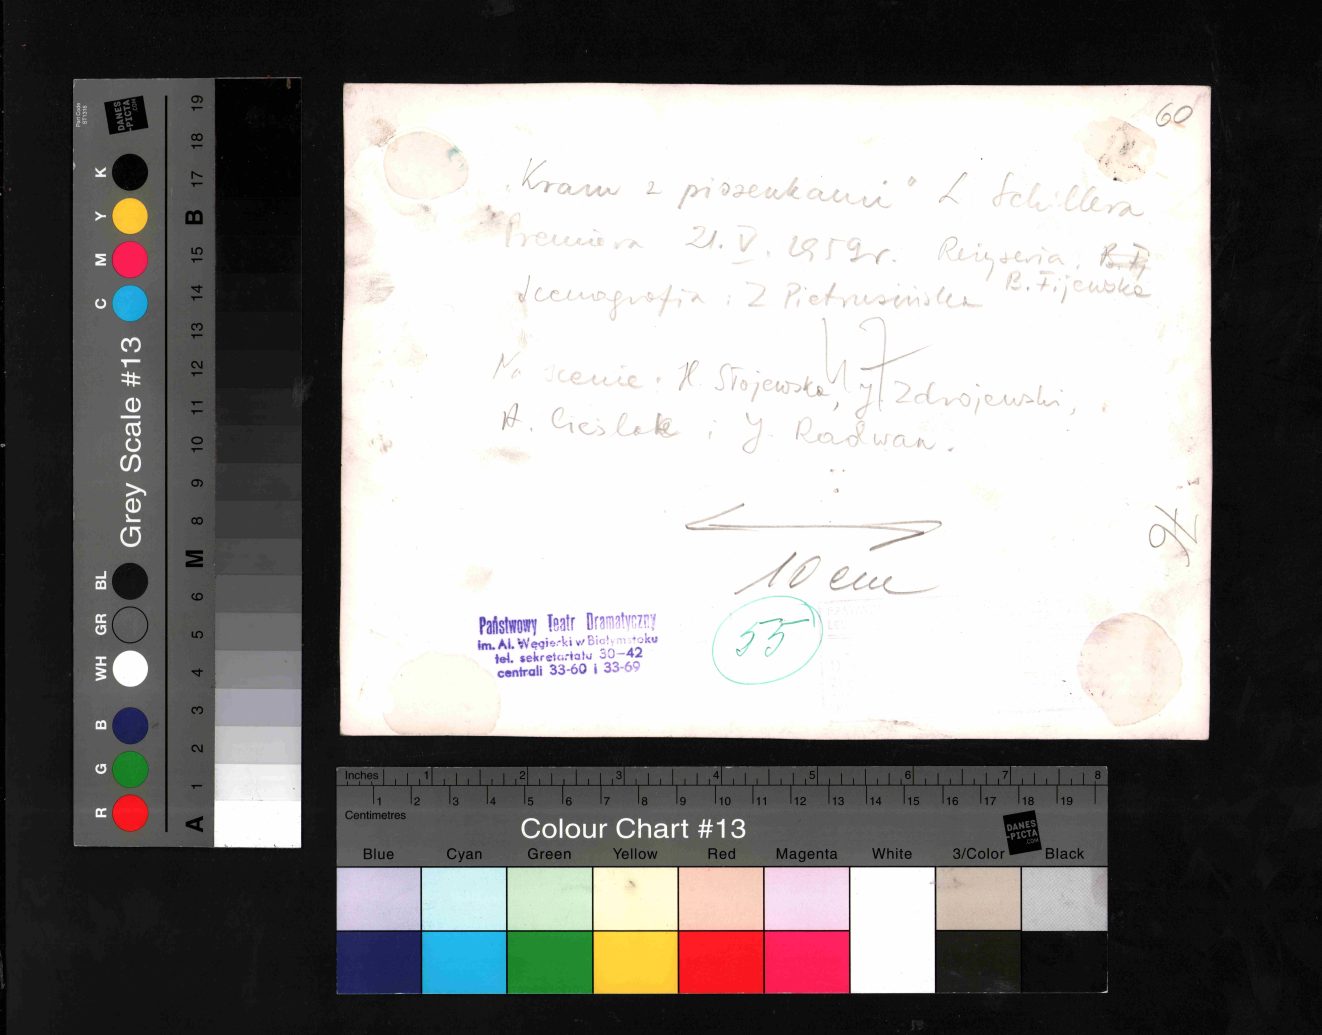 60
„Kram z piosenkami” L Schillera
Premiera 21.V.1959r. Reżyseria:
B. Fijewska
Scenografia: Z Pietrusińska
Na scenie: H. Stojewska, J. Zdrojewski,
A. Cieślak i J. Radwan.
10 cm
55
Państwowy Teatr Dramatyczny
im. Al. Węgierki w Białymstoku
tel. sekretariatu 30-42
centrali 33-60 i 33-69
Part Code
DANES
-PICTA
.COM
Grey Scale #13
K Y M C
BL GR WH B G R
19 18 17 B 15 14 13 12 11 10 9 8 M 6 5 4 3 2 1 A
Inches 1 2 3 4 5 6 7 8
1 2 3 4 5 6 7 8 9 10 11 12 13 14 15 16 17 18 19
Centimetres
Colour Chart #13
DANES
-PICTA
.COM
Blue Cyan Green Yellow Red Magenta White 3/Color Black